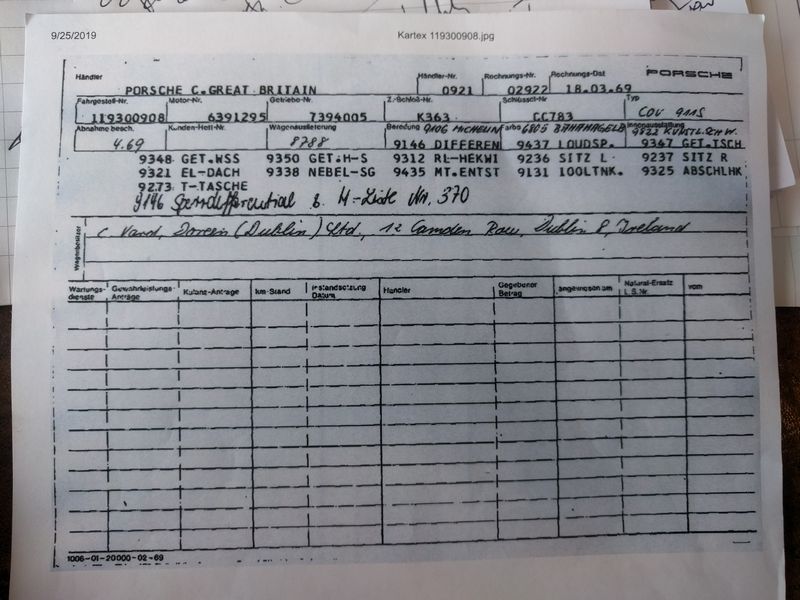 9/25/2019 Kartex 119300908.jpg
Händler Händler-Nr. Rechnungs-Nr. Rechnungs-Dat PORSCHE
PORSCHE C.GREAT BRITAIN 0921 02922 18.03.69
Fahrgestell-Nr. Motor-Nr. Getriebe-Nr. Z.-Schloß-Nr. Schlüssel-Nr. Typ
119300908 6391295 7394005 K363 CC783 COU 911S
Abnahme besch. Kunden-Heft-Nr. Wagenauslieferung Bereifung 9106 MICHELIN Farbe 6805 BAHAMAGELB Innenausstattung
4.69 8788 9822 KUNSTL. SCHW.
9146 DIFFEREN 9437 LOUDSP. 9367 GET.TSCH
9348 GET.WSS 9350 GET.H-S 9312 RL-HEKWI 9236 SITZ L 9237 SITZ R
9321 EL-DACH 9338 NEBEL-SG 9435 MT.ENTST 9131 100LTNK. 9325 ABSCHLHK
9273 T-TASCHE
9146 Sperrdifferential s. M-Liste Nr. 370
Wagenbesitzer
C. Vard, (Dublin) Ltd., 12 Camden Row, Dublin 8, Ireland
Wartungs-dienste Gewährleistungs-Anträge Kulanz-Anträge km-Stand Instandsetzung Datum Händler Gegebener Betrag angewiesen am Natural-Ersatz L.S.Nr. vom
1006-01-20000-02-69